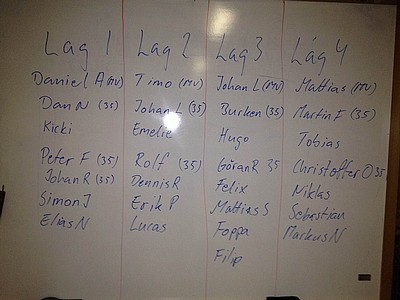 Lag 1
Daniel A (MV)
Dan N (35)
Kicki
Peter F (35)
Johan R (35)
Simon J
Elias N
Lag 2
Timo (MV)
Johan L (35)
Emelie
Rolf (35)
Dennis R
Erik P
Lucas
Lag 3
Johan L (MV)
Burken (35)
Hugo
Göran R 35
Felix
Mattias S
Foppa
Filip
Låg 4
Mattias (MV)
Martin F (35)
Tobias
Christoffer O 35
Niklas
Sebastian
Markus N